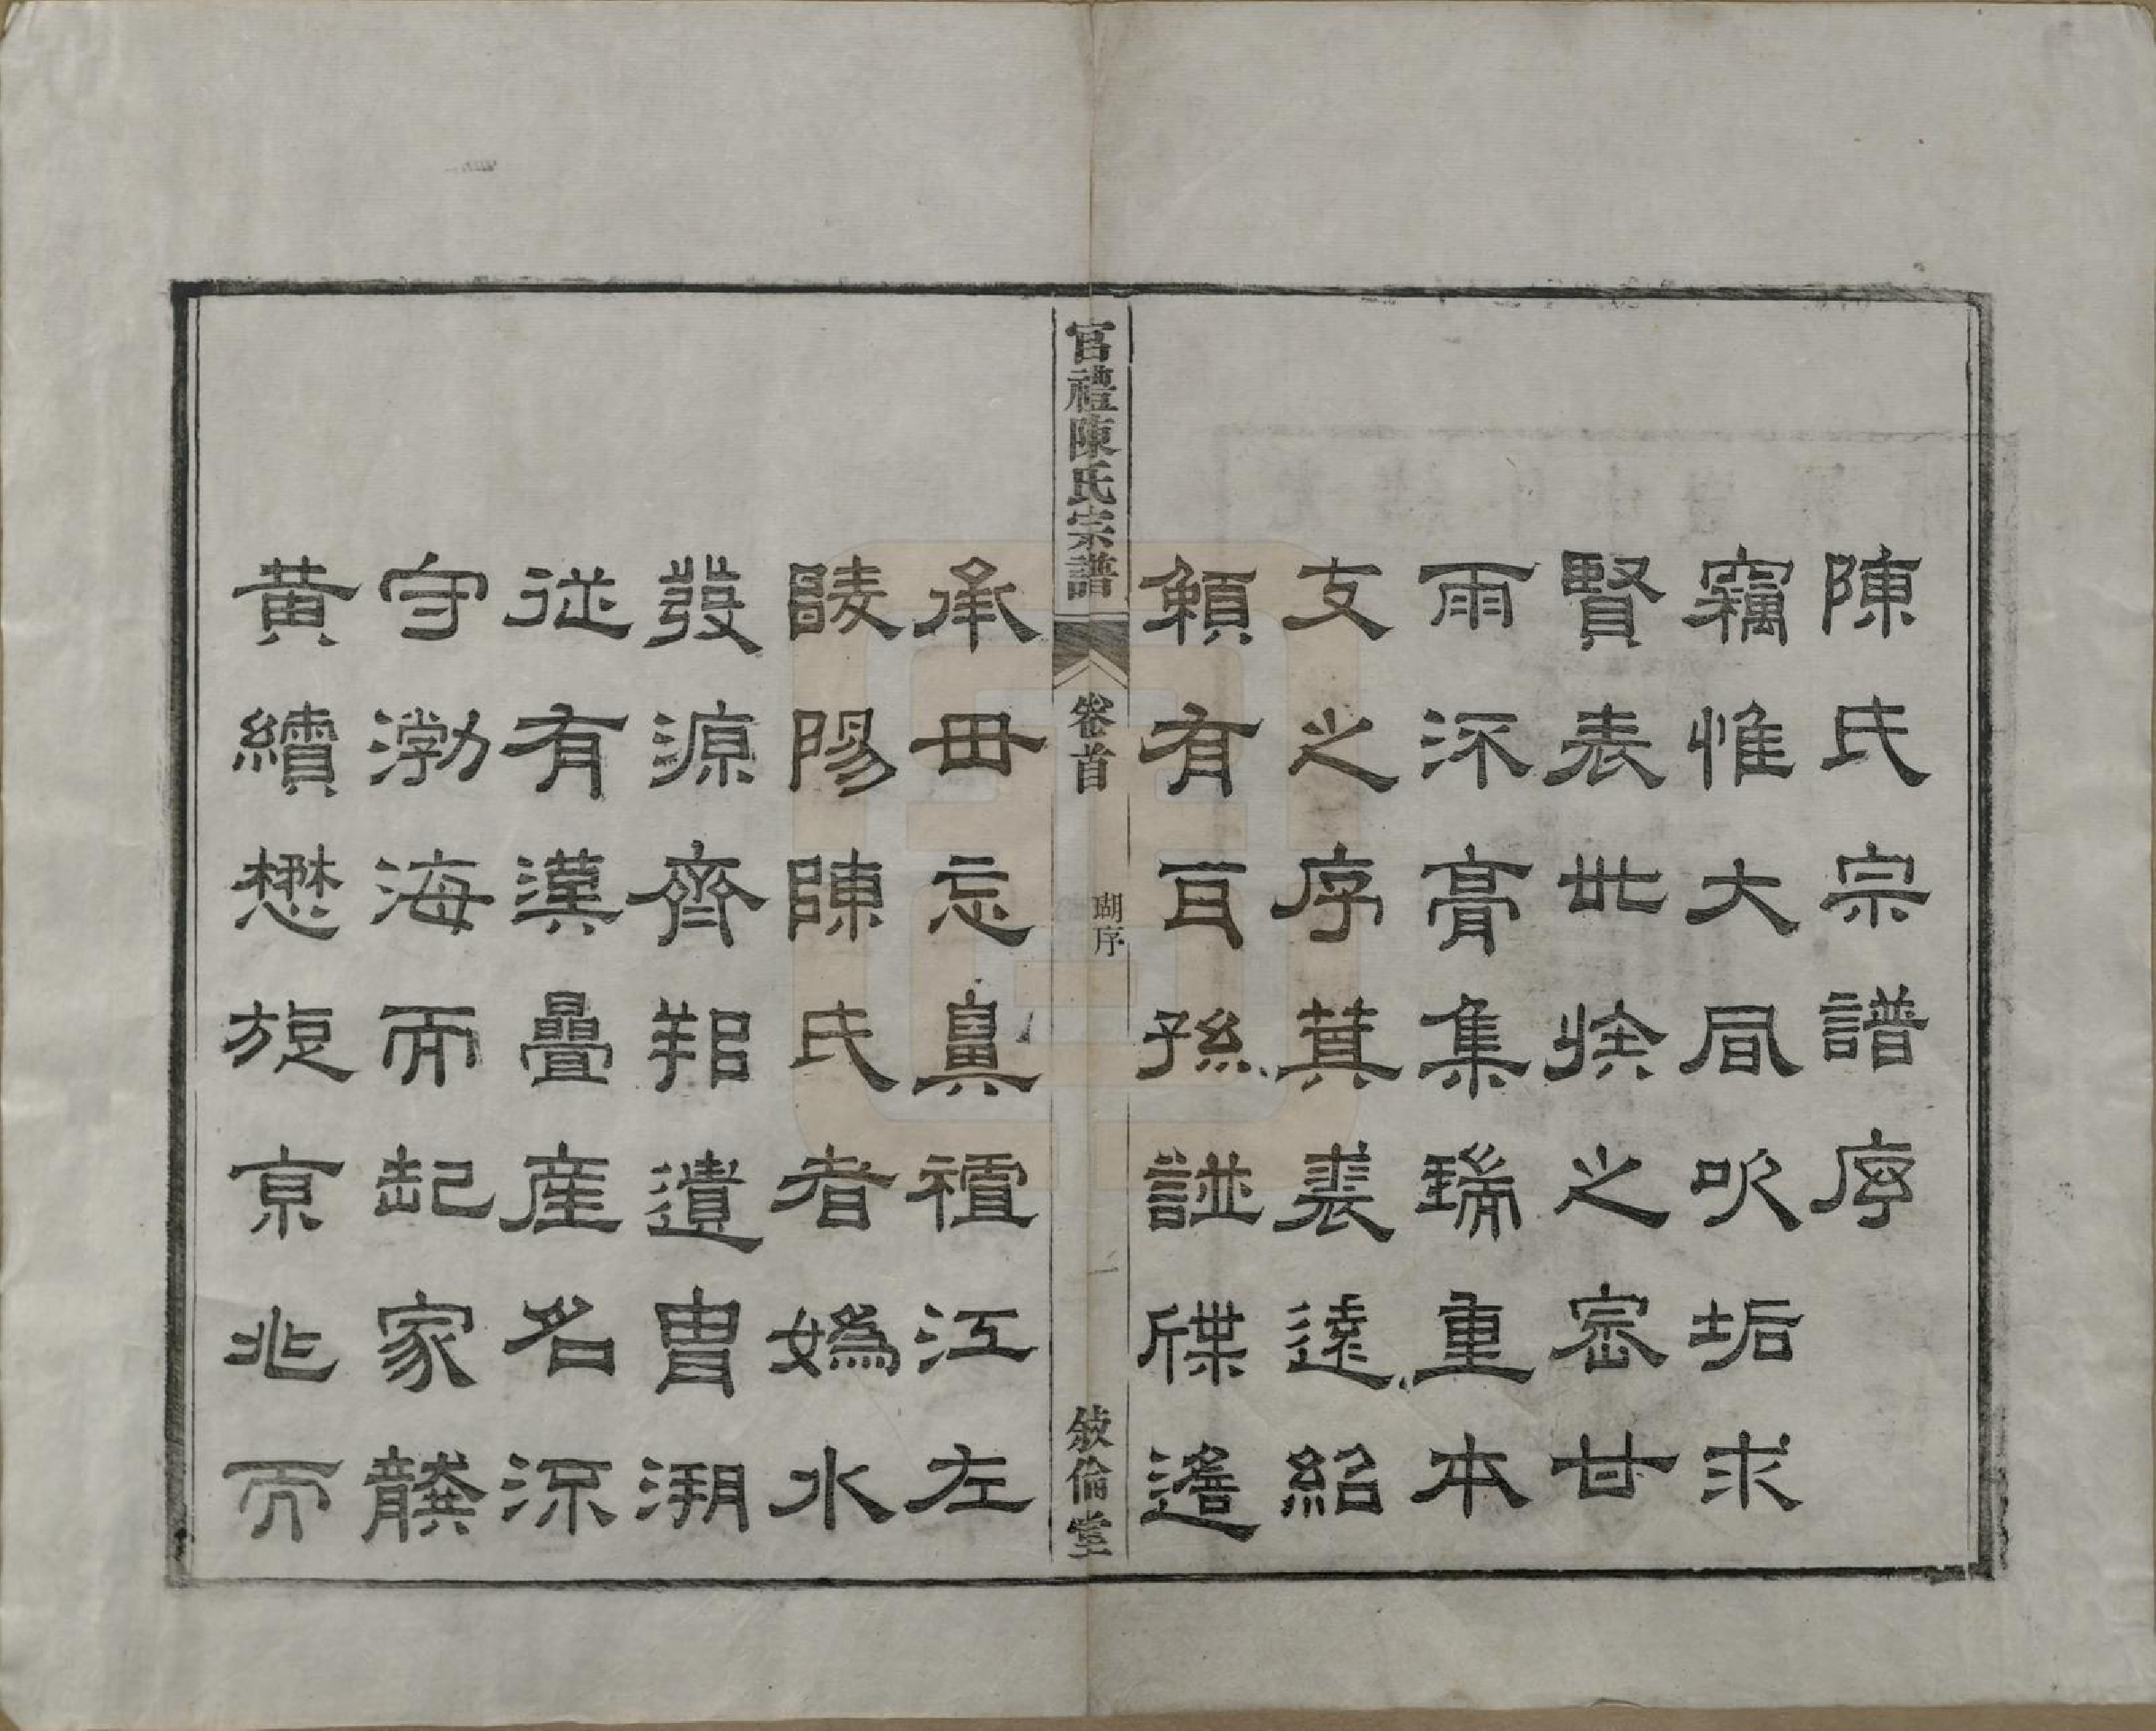 陳氏宗譜序
竊惟大風吹垢求
賢表世族之密甘
雨沃膏集瑞重本
支之序其裘遠紹
賴有耳孫譜牒遙
承毋忘鼻禋江左
官禮陳氏宗譜
卷首
瑚序
一
敘倫堂
陵陽陳氏者媯水
發源齊邦遺冑溯
從有漢疊產名流
守渤海而起家龔
黃續懋旋京兆而